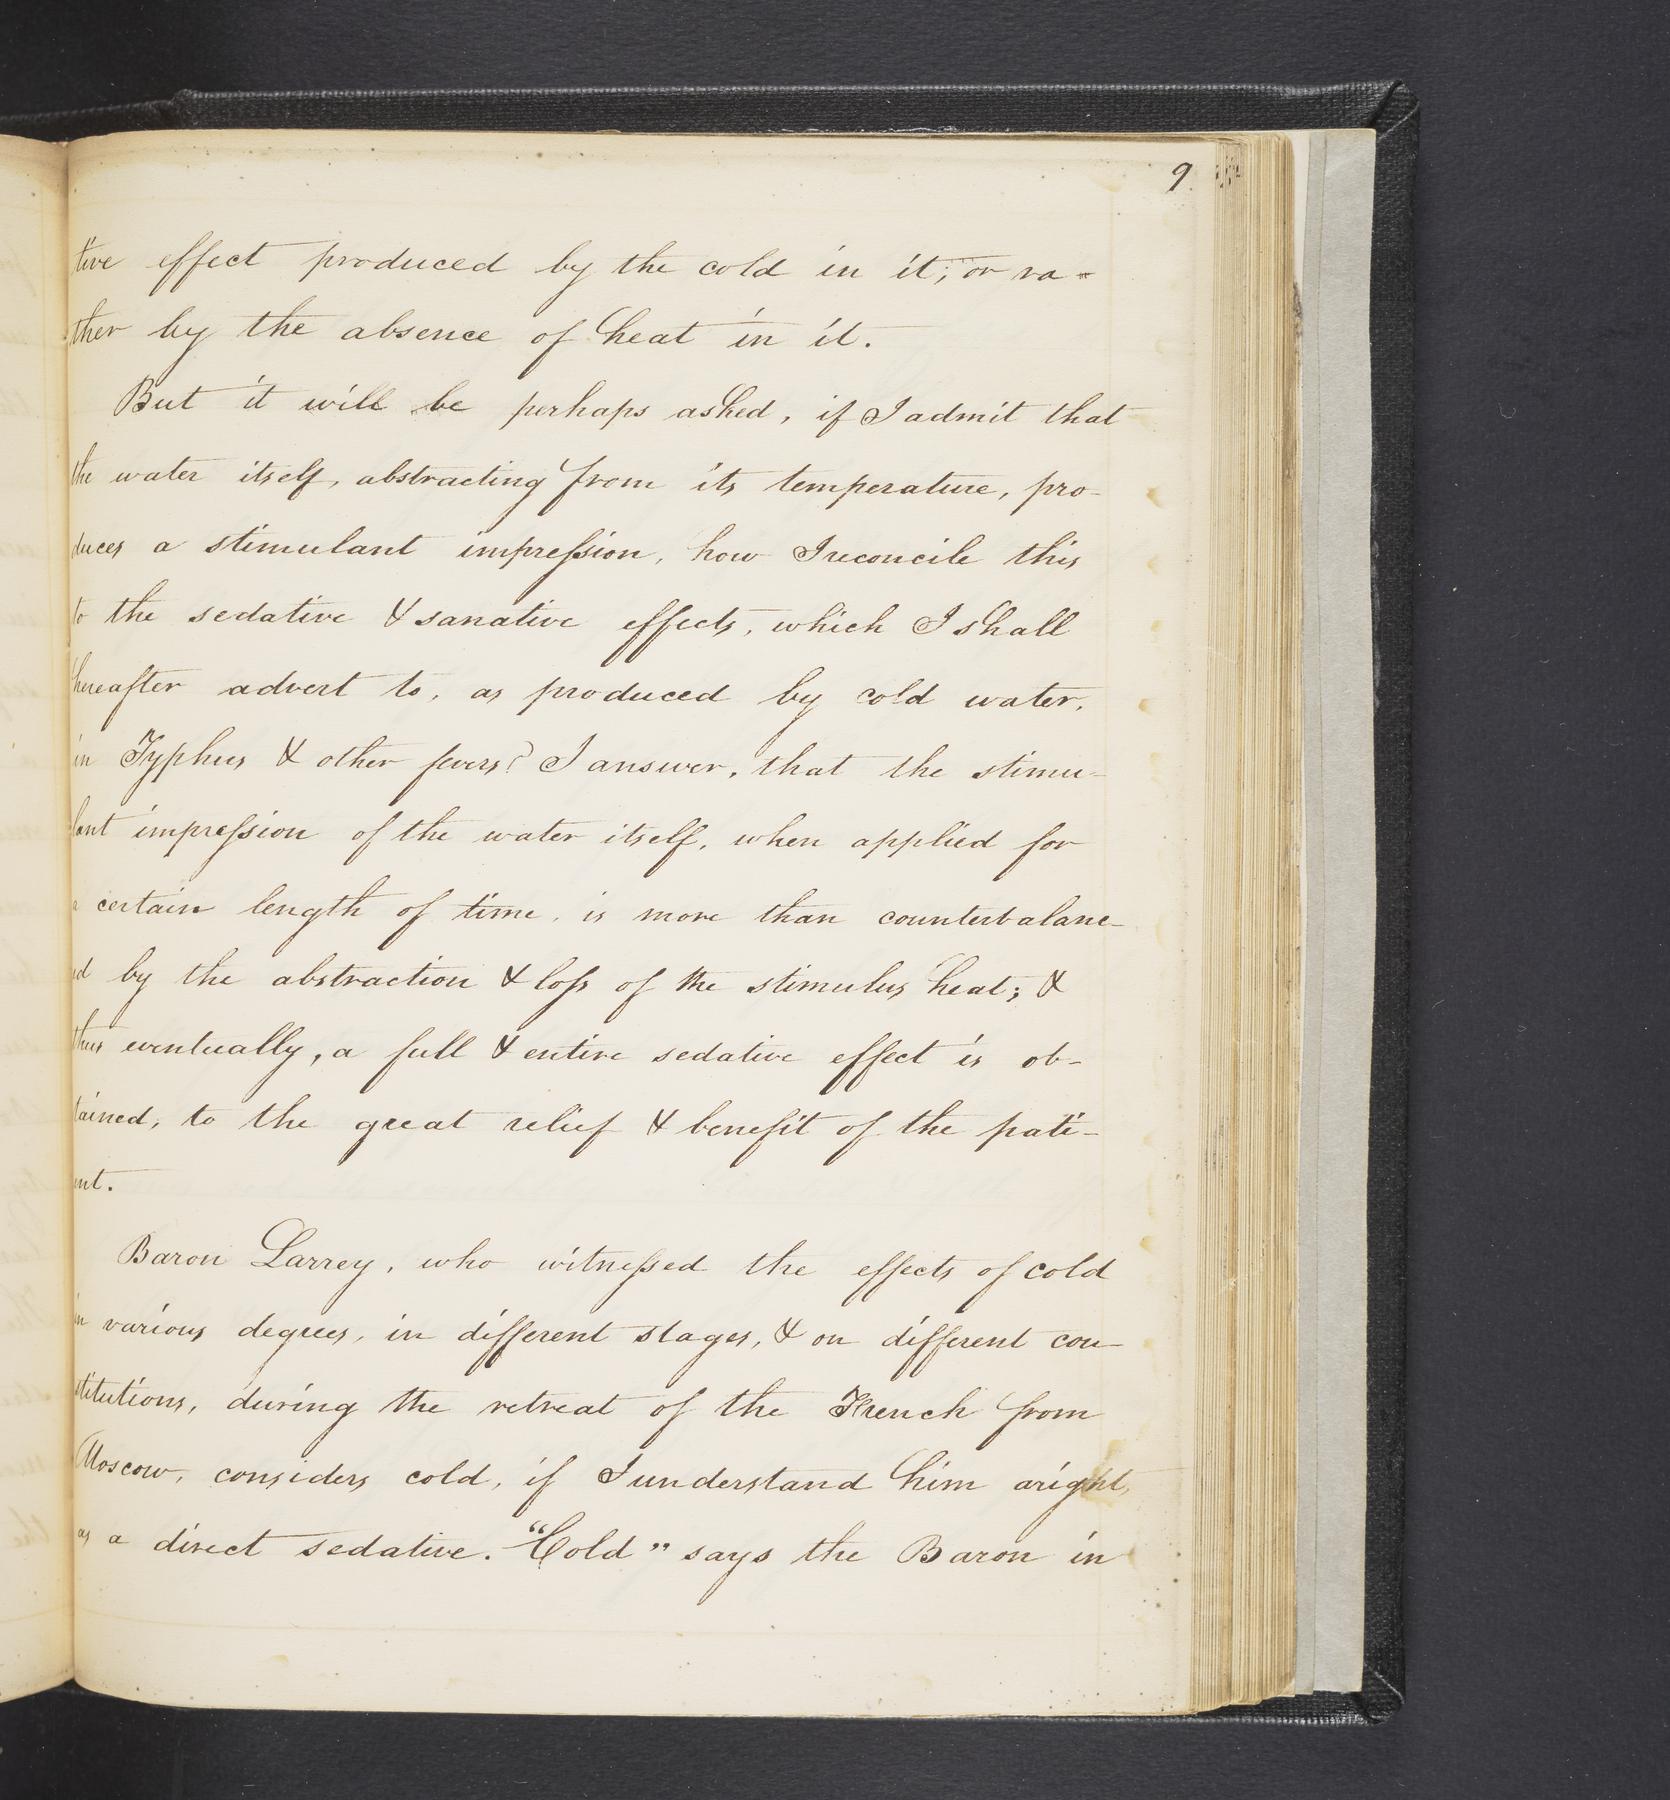 9
tive effect produced by the cold in it; or ra=
ther by the absence of heat in it.
But it will be perhaps asked, if I admit that
the water itself, abstracting from its temperature, pro-
duces a stimulant impreſsion, how I reconcile this
to the sedative & sanative effects, which I shall
hereafter advert to, as produced by cold water,
in Typhus & other fevers? I answer, that the stimu-
lant impreſsion of the water itself, when applied for
a certain length of time, is more than counterbalanc-
ed by the abstraction & loſs of the stimulus heat; &
thus eventually, a full & entire sedative effect is ob-
tained, to the great relief & benefit of the pati-
ent.
Baron Larrey, who witneſsed the effects of cold
in various degrees, in different stages, & on different con-
stitutions, during the retreat of the French from
Moscow, considers cold, if I understand him aright,
as a direct sedative. "Cold" says the Baron in